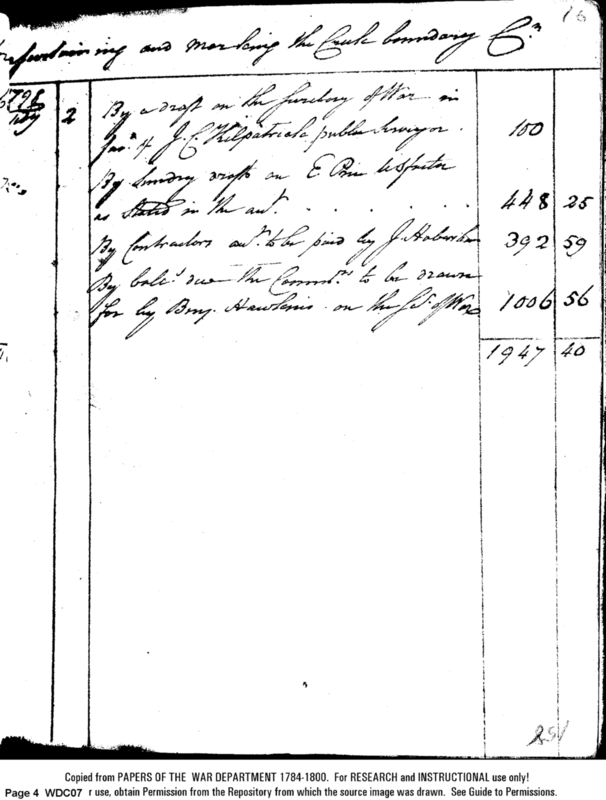 16
ascertaining and marking the Creek boundary Cr.
1798
May 2 By a draft on the Secretary of War in
fav.r of J. C. Kilpatrick public Surveyor . 100
By Sundry drafts on E. Price as factor
as Stated in the acct. . . . . . . 448 25
By Contractors acct. to be paid by J. Habersham 392 59
By balc.e due the Commrs. to be drawn
for by Benj. Hawkins on the Sec. of War 1006 56
1947 40
251
Copied from PAPERS OF THE WAR DEPARTMENT 1784-1800. For RESEARCH and INSTRUCTIONAL use only!
Page 4 WDC07 r use, obtain Permission from the Repository from which the source image was drawn. See Guide to Permissions.